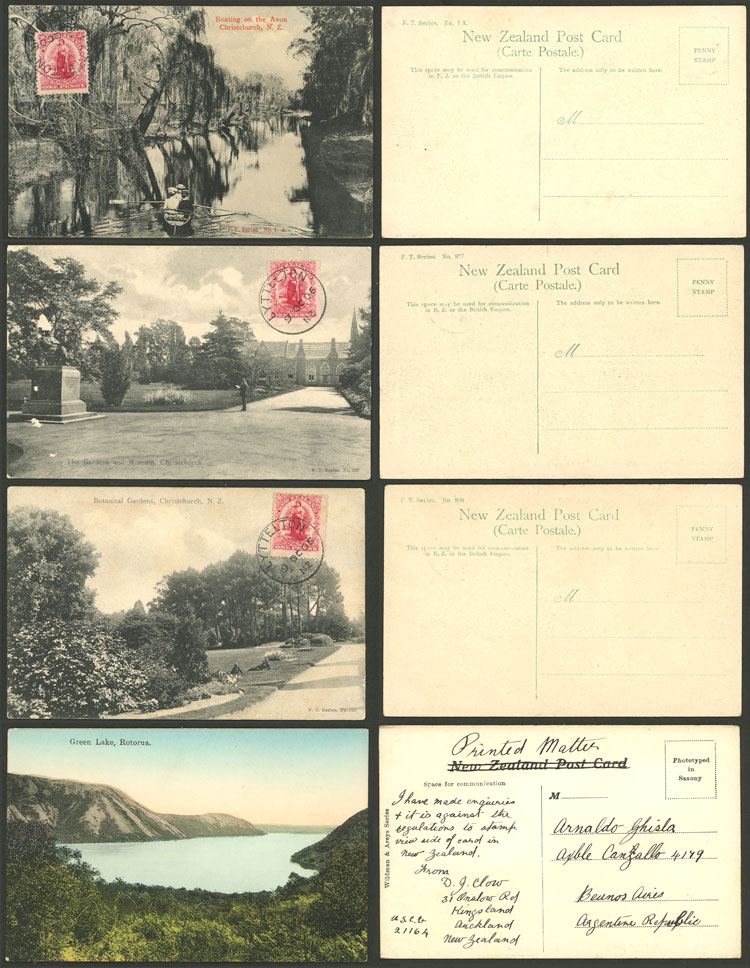 Boating on the Avon
Christchurch, N. Z.
ONE PENNY
F. T. Series. No. 1 A.
F. T. Series. No. 1 A.
New Zealand Post Card
(Carte Postale.)
This space may be used for communication
in N. Z. or the British Empire.
The address only to be written here.
PENNY
STAMP
M
LYTTELTON
9 OC 06
The Gardens and Museum, Christchurch
F. T. Series. No. 977
F. T. Series. No. 977
New Zealand Post Card
(Carte Postale.)
This space may be used for communication
in N. Z. or the British Empire.
The address only to be written here.
PENNY
STAMP
M
Botanical Gardens, Christchurch, N. Z.
LYTTELTON
9 OC 06
ONE PENNY
F. T. Series. No.
F. T. Series. No.
New Zealand Post Card
(Carte Postale.)
This space may be used for communication
in N. Z. or the British Empire.
The address only to be written here.
PENNY
STAMP
M
Green Lake, Rotorua.
Printed Matter
New Zealand Post Card
Space for communication
Phototyped
in
Saxony
Wildman & Areys Series
I have made enquiries
& it is against the
regulations to stamp
view side of card in
New Zealand.
From
D. J. Clow
31 Onslow Rd
Kingsland
Auckland
New Zealand
21164
M
Arnaldo Ghisla
Cangallo 4179
Buenos Aires
Argentine Republic